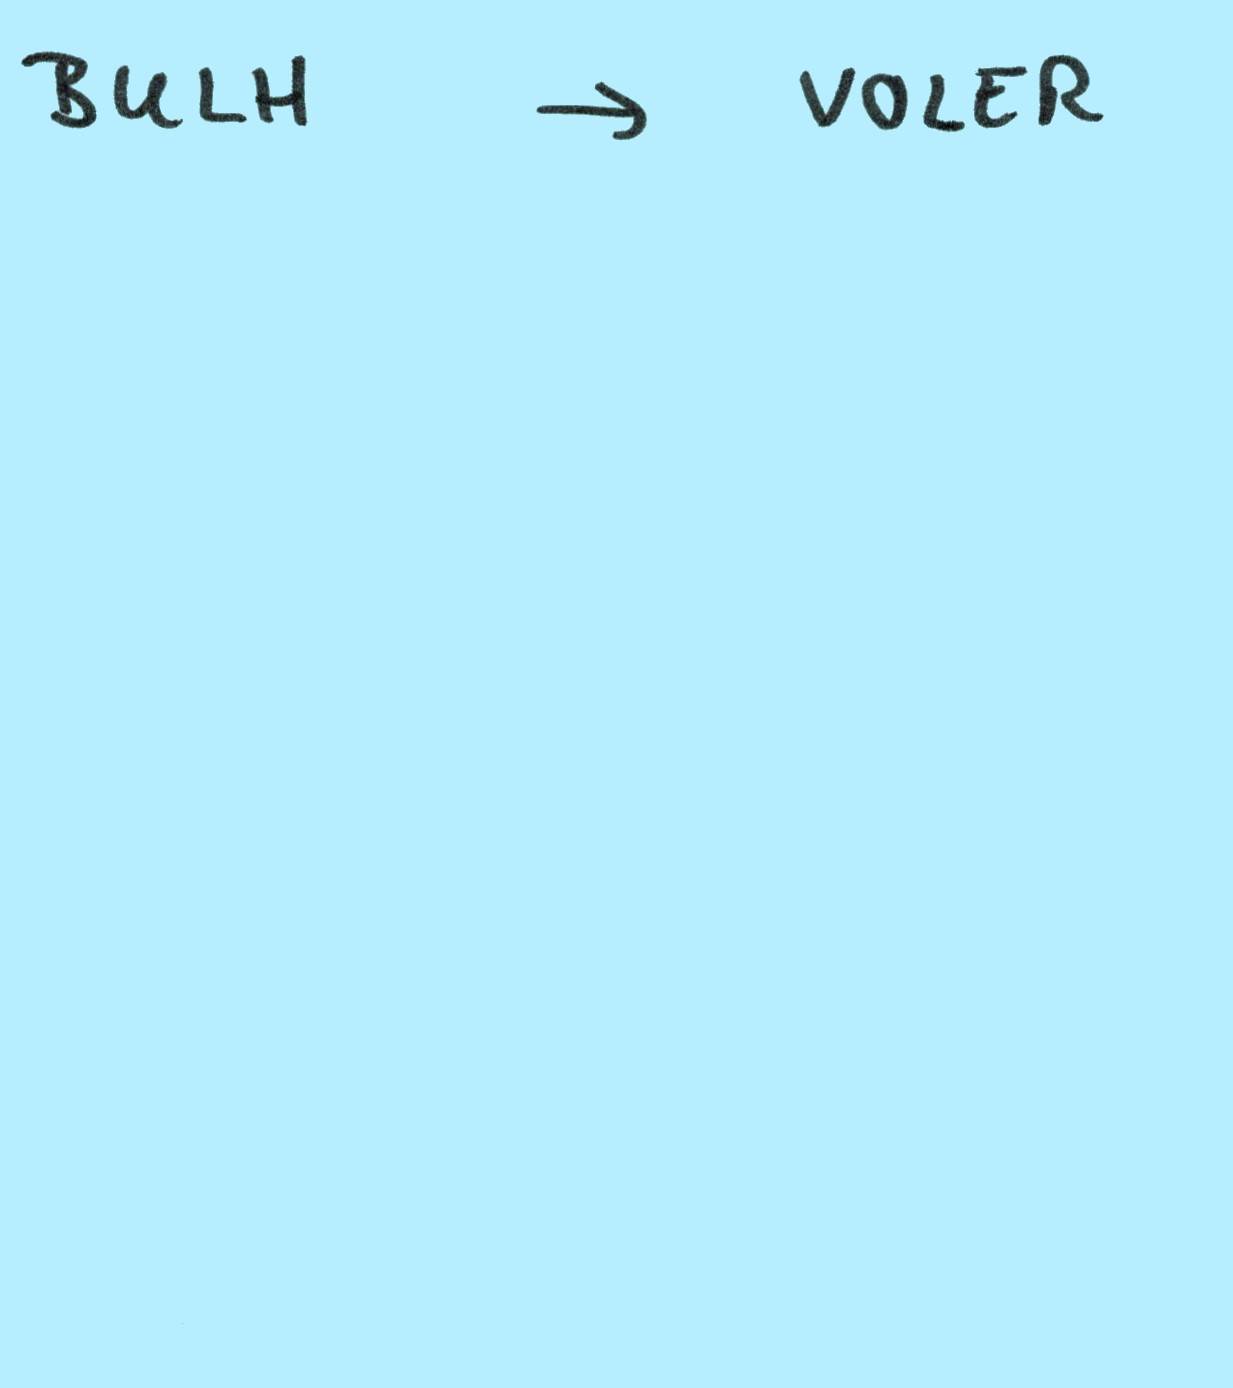 BULH → VOLER